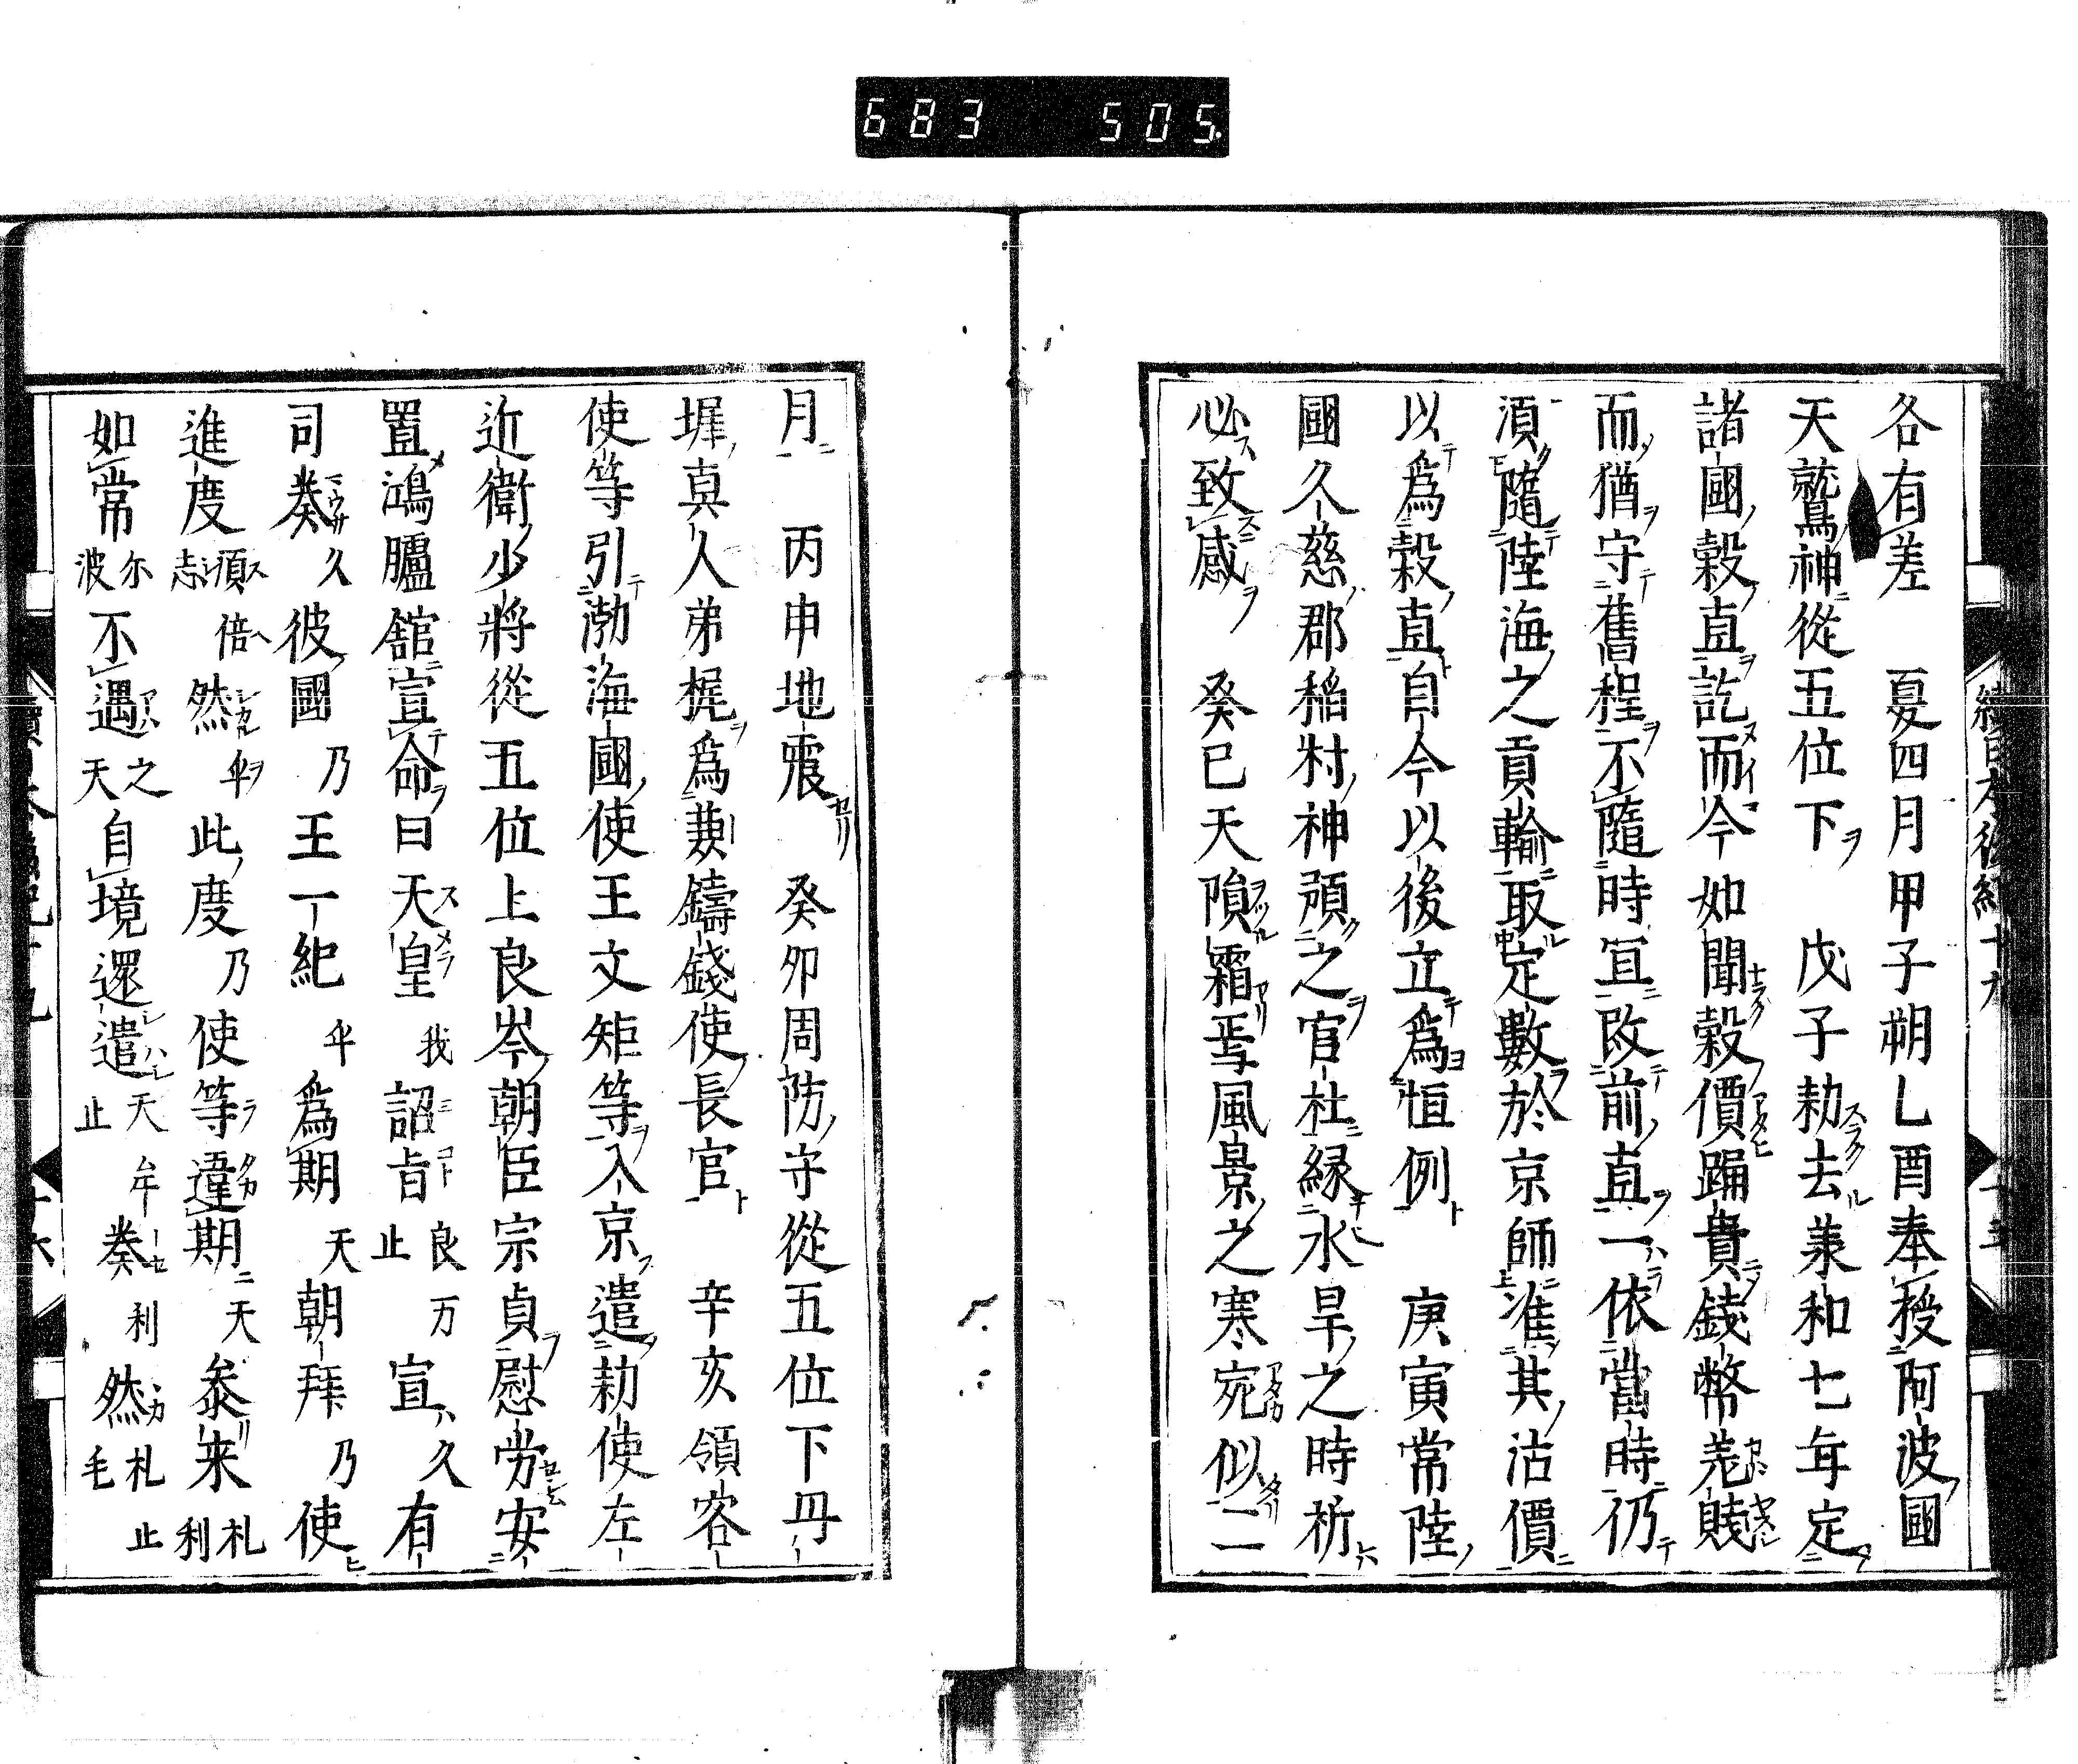 683 505
各有差 夏四月甲子朔乙酉奉授阿波國
天鷲神從五位下 戊子勑去兼和七年定
諸國穀直訖而今如聞穀價踊貴錢幣差賤
而猶守舊程不隨時宜改前直一依當時仍
湏隨陸海之貢輸取定數於京師准其沽價
以爲穀直自今以後立爲恒例 庚寅常陸
國久慈郡稻村神預之官社縁水旱之時祈
必致感 癸巳天隕霜焉風景之寒宛似二
月 丙申地震 癸夘周防守從五位下丹
墀真人弟梶爲兼鑄錢使長官 辛亥領客
使等引渤海國使王文矩等入京遣勑使左
近衛少將從五位上良岑朝臣宗貞慰労安
置鴻臚舘宣命曰天皇我詔旨良止万宣久有
司奏久彼國乃王一紀乎爲期天朝拜乃使
進度湏志倍然乎此度乃使等違期天叅来札利止
如常尔波不遇之天自境還遣天止牟奏利然札毛